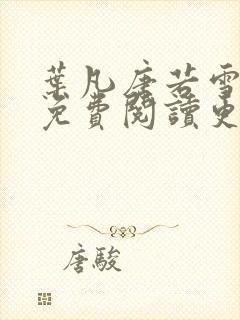 葉凡唐若雪
免費閱讀更
唐駿